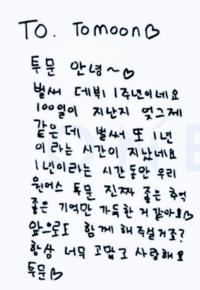 To. Tomoon♡
투문 안녕~♡
벌써 데뷔 1주년이네요
100일이 지난지 엊그제
같은데 벌써 또 1년
이라는 시간이 지났네요
1년이라는 시간동안 우리
원어스 투문 진짜 좋은 추억
좋은 기억만 가득한 거 같아요♡
앞으로도 함께 해주실거죠?
항상 너무 고맙고 사랑해요
투문♡